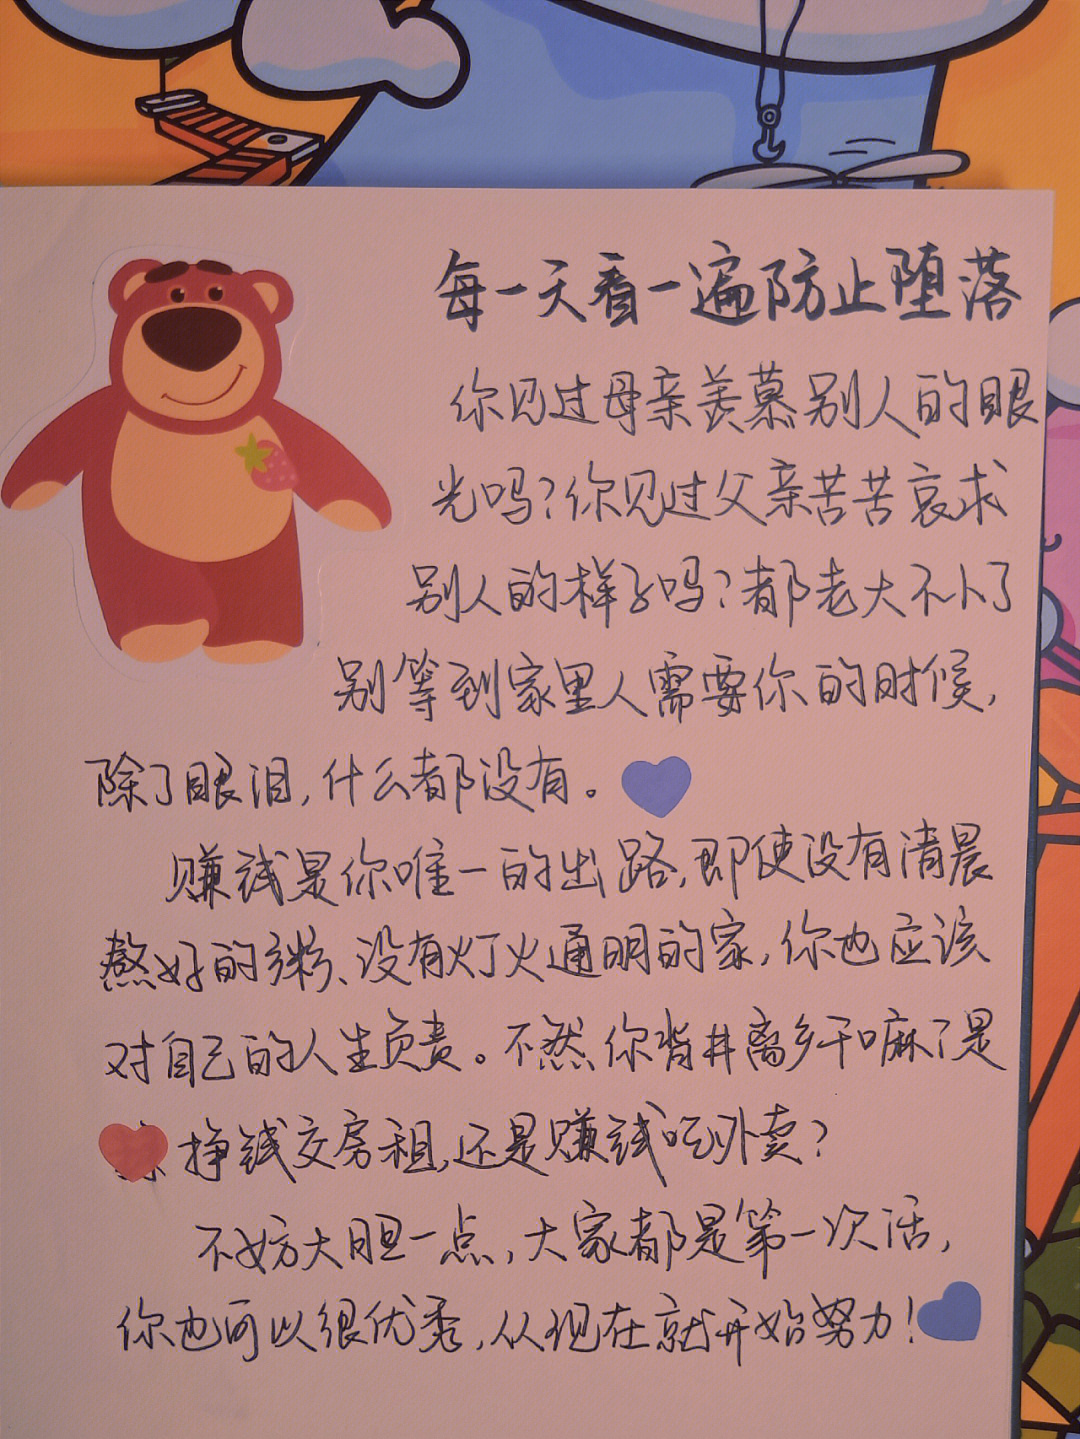 每一天看一遍防止堕落
你见过母亲羡慕别人的眼
光吗?你见过父亲苦苦哀求
别人的样子吗?都老大不小了
别等到家里人需要你的时候,
除了眼泪,什么都没有。
赚钱是你唯一的出路,即使没有清晨
熬好的粥、没有灯火通明的家,你也应该
对自己的人生负责。不然你背井离乡干嘛了是
挣钱交房租,还是赚钱吃外卖?
不妨大胆一点,大家都是第一次活,
你也可以很优秀,从现在就开始努力!